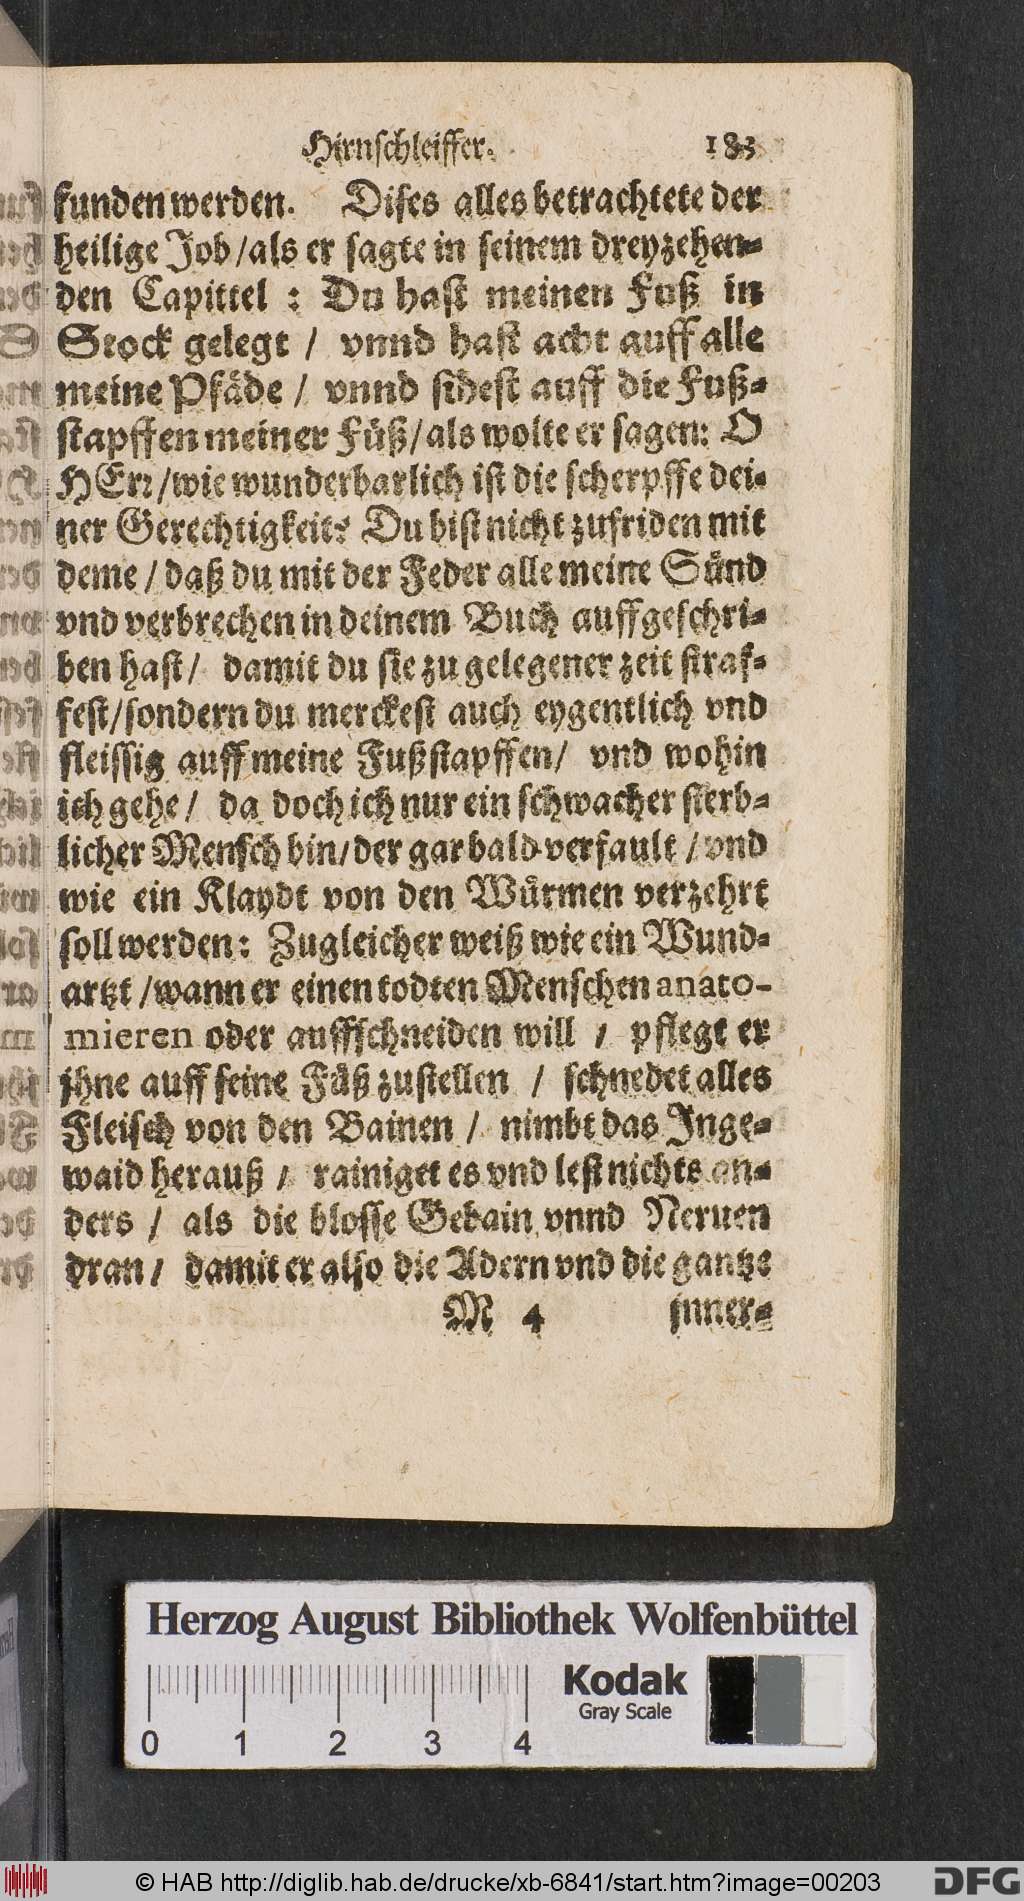 Hirnschleiffer. 183
funden werden. Dises alles betrachtete der
heilige Job / als er sagte in seinem dreyzehen-
den Capittel : Du hast meinen Fuß in
Stock gelegt / vnnd hast acht auff alle
meine Pfäde / vnnd sihest auff die Fuß-
stapffen meiner Füß / als wolte er sagen: O
HErr / wie wunderbarlich ist die scherpffe dei-
ner Gerechtigkeit? Du bist nicht zufriden mit
deme / daß du mit der Feder alle meine Sünd
vnd verbrechen in deinem Buch auffgeschri-
ben hast / damit du sie zu gelegener zeit straf-
fest / sondern du merckest auch eygentlich vnd
fleissig auff meine Fußstapffen / vnd wohin
ich gehe / da doch ich nur ein schwacher sterb-
licher Mensch bin / der gar bald verfault / vnd
wie ein Klaydt von den Würmen verzehrt
soll werden: Zugleicher weiß wie ein Wund-
artzt / wann er einen todten Menschen anato-
mieren oder auffschneiden will / pflegt er
jhne auff seine Füß zustellen / schnedet alles
Fleisch von den Bainen / nimbt das Inge-
waid herauß / rainiget es vnd lest nichts an-
ders / als die blosse Gebain vnnd Neruen
dran / damit er also die Adern vnd die gantze
M 4 jnner-
Herzog August Bibliothek Wolfenbüttel
Kodak
Gray Scale
0 1 2 3 4
© HAB http://diglib.hab.de/drucke/xb-6841/start.htm?image=00203
DFG